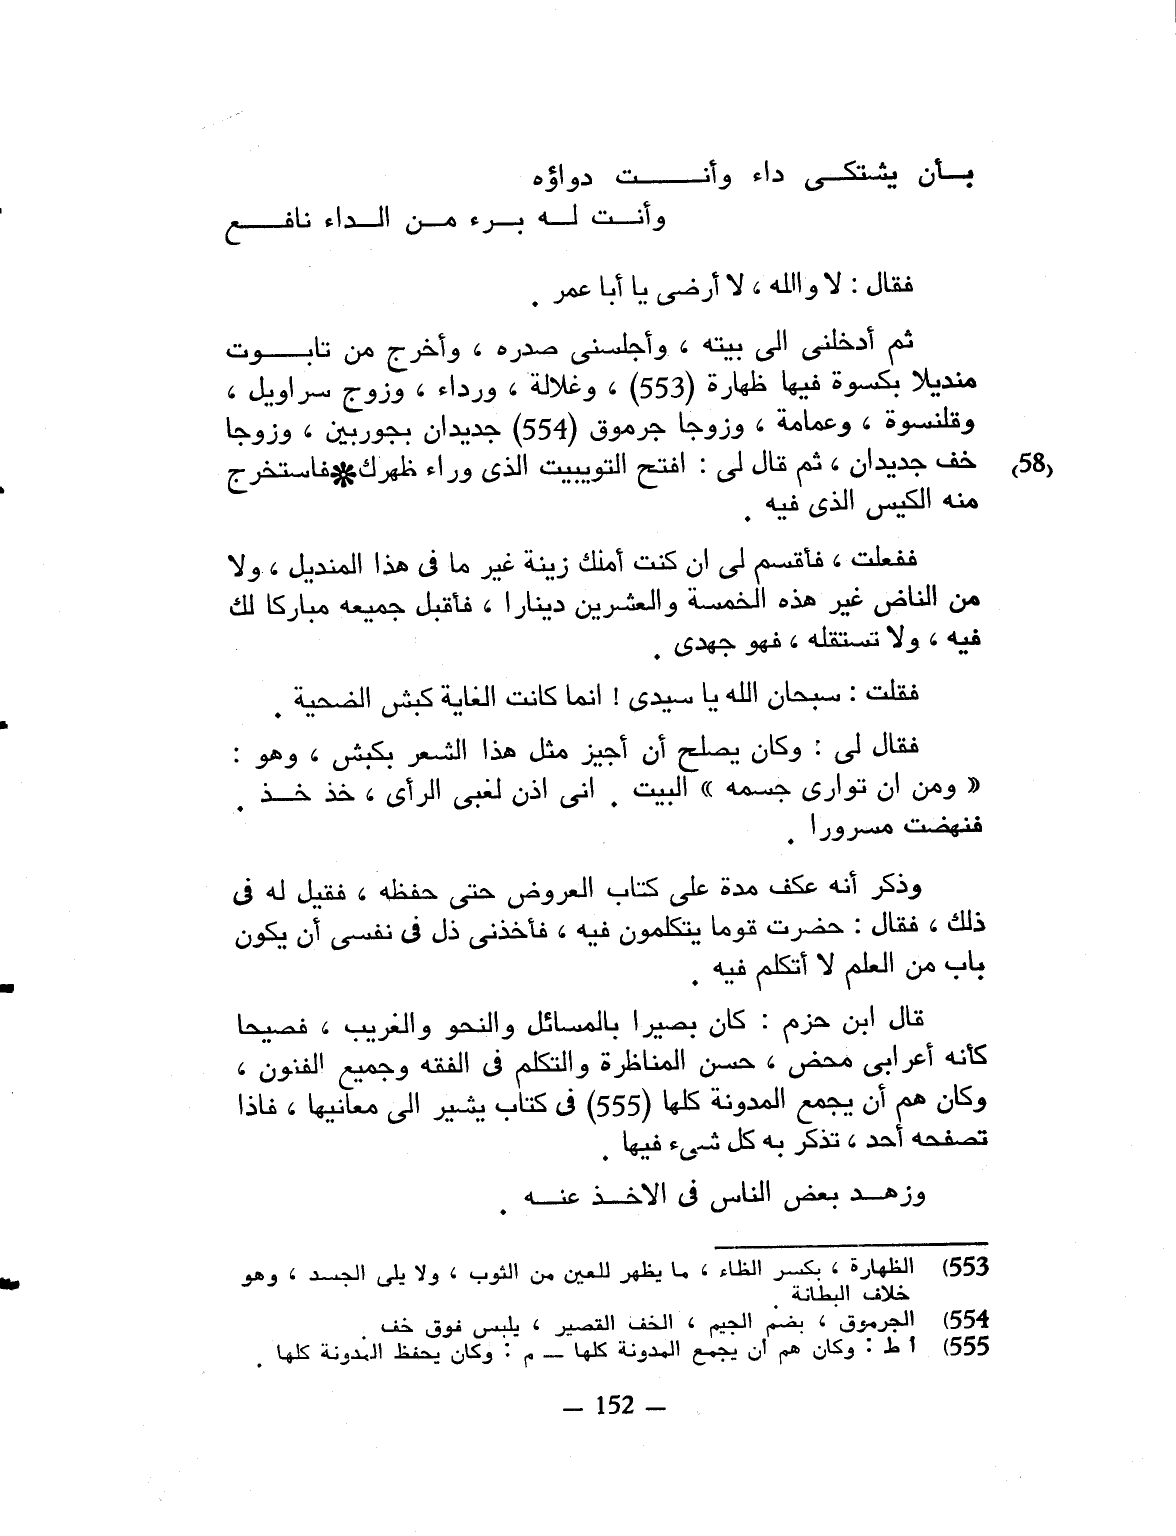 بأن يشتكى داء وأنت دواؤه
وأنت له برء من الداء نافع
فقال : لا والله ، لا أرضى يا أبا عمر .
ثم أدخلنى الى بيته ، وأجلسنى صدره ، وأخرج من تابوت
منديلا بكسوة فيها ظهارة (553) ، وغلالة ، ورداء ، وزوج سراويل ،
وقلنسوة ، وعمامة ، وزوجا جرموق (554) جديدان بجوربين ، وزوجا
خف جديدان ، ثم قال لى : افتح التويبيت الذى وراء ظهرك*فاستخرج (58)
منه الكيس الذى فيه .
ففعلت ، فأقسم لى ان كنت أملك زينة غير ما فى هذا المنديل ، ولا
من الناض غير هذه الخمسة والعشرين دينارا ، فأقبل جميعه مباركا لك
فيه ، ولا تستقله ، فهو جهدى .
فقلت : سبحان الله يا سيدى ! انما كانت الغاية كبش الضحية .
فقال لى : وكان يصلح أن أجيز مثل هذا الشعر بكبش ، وهو :
« ومن ان توارى جسمه » البيت . انى اذن لغبى الرأى ، خذ خذ .
فنهضت مسرورا .
وذكر أنه عكف مدة على كتاب العروض حتى حفظه ، فقيل له فى
ذلك ، فقال : حضرت قوما يتكلمون فيه ، فأخذنى ذل فى نفسى أن يكون
باب من العلم لا أتكلم فيه .
قال ابن حزم : كان بصيرا بالمسائل والنحو والغريب ، فصيحا
كأنه أعرابى محض ، حسن المناظرة والتكلم فى الفقه وجميع الفنون ،
وكان هم أن يجمع المدونة كلها (555) فى كتاب يشير الى معانيها ، فاذا
تصفحه أحد ، تذكر به كل شىء فيها .
وزهد بعض الناس فى الاخذ عنه .
553) الظهارة ، بكسر الظاء ، ما يظهر للعين من الثوب ، ولا يلى الجسد ، وهو
خلاف البطانة .
554) الجرموق ، بضم الجيم ، الخف القصير ، يلبس فوق خف .
555) أ ط : وكان هم أن يجمع المدونة كلها — م : وكان يحفظ المدونة كلها .
— 152 —